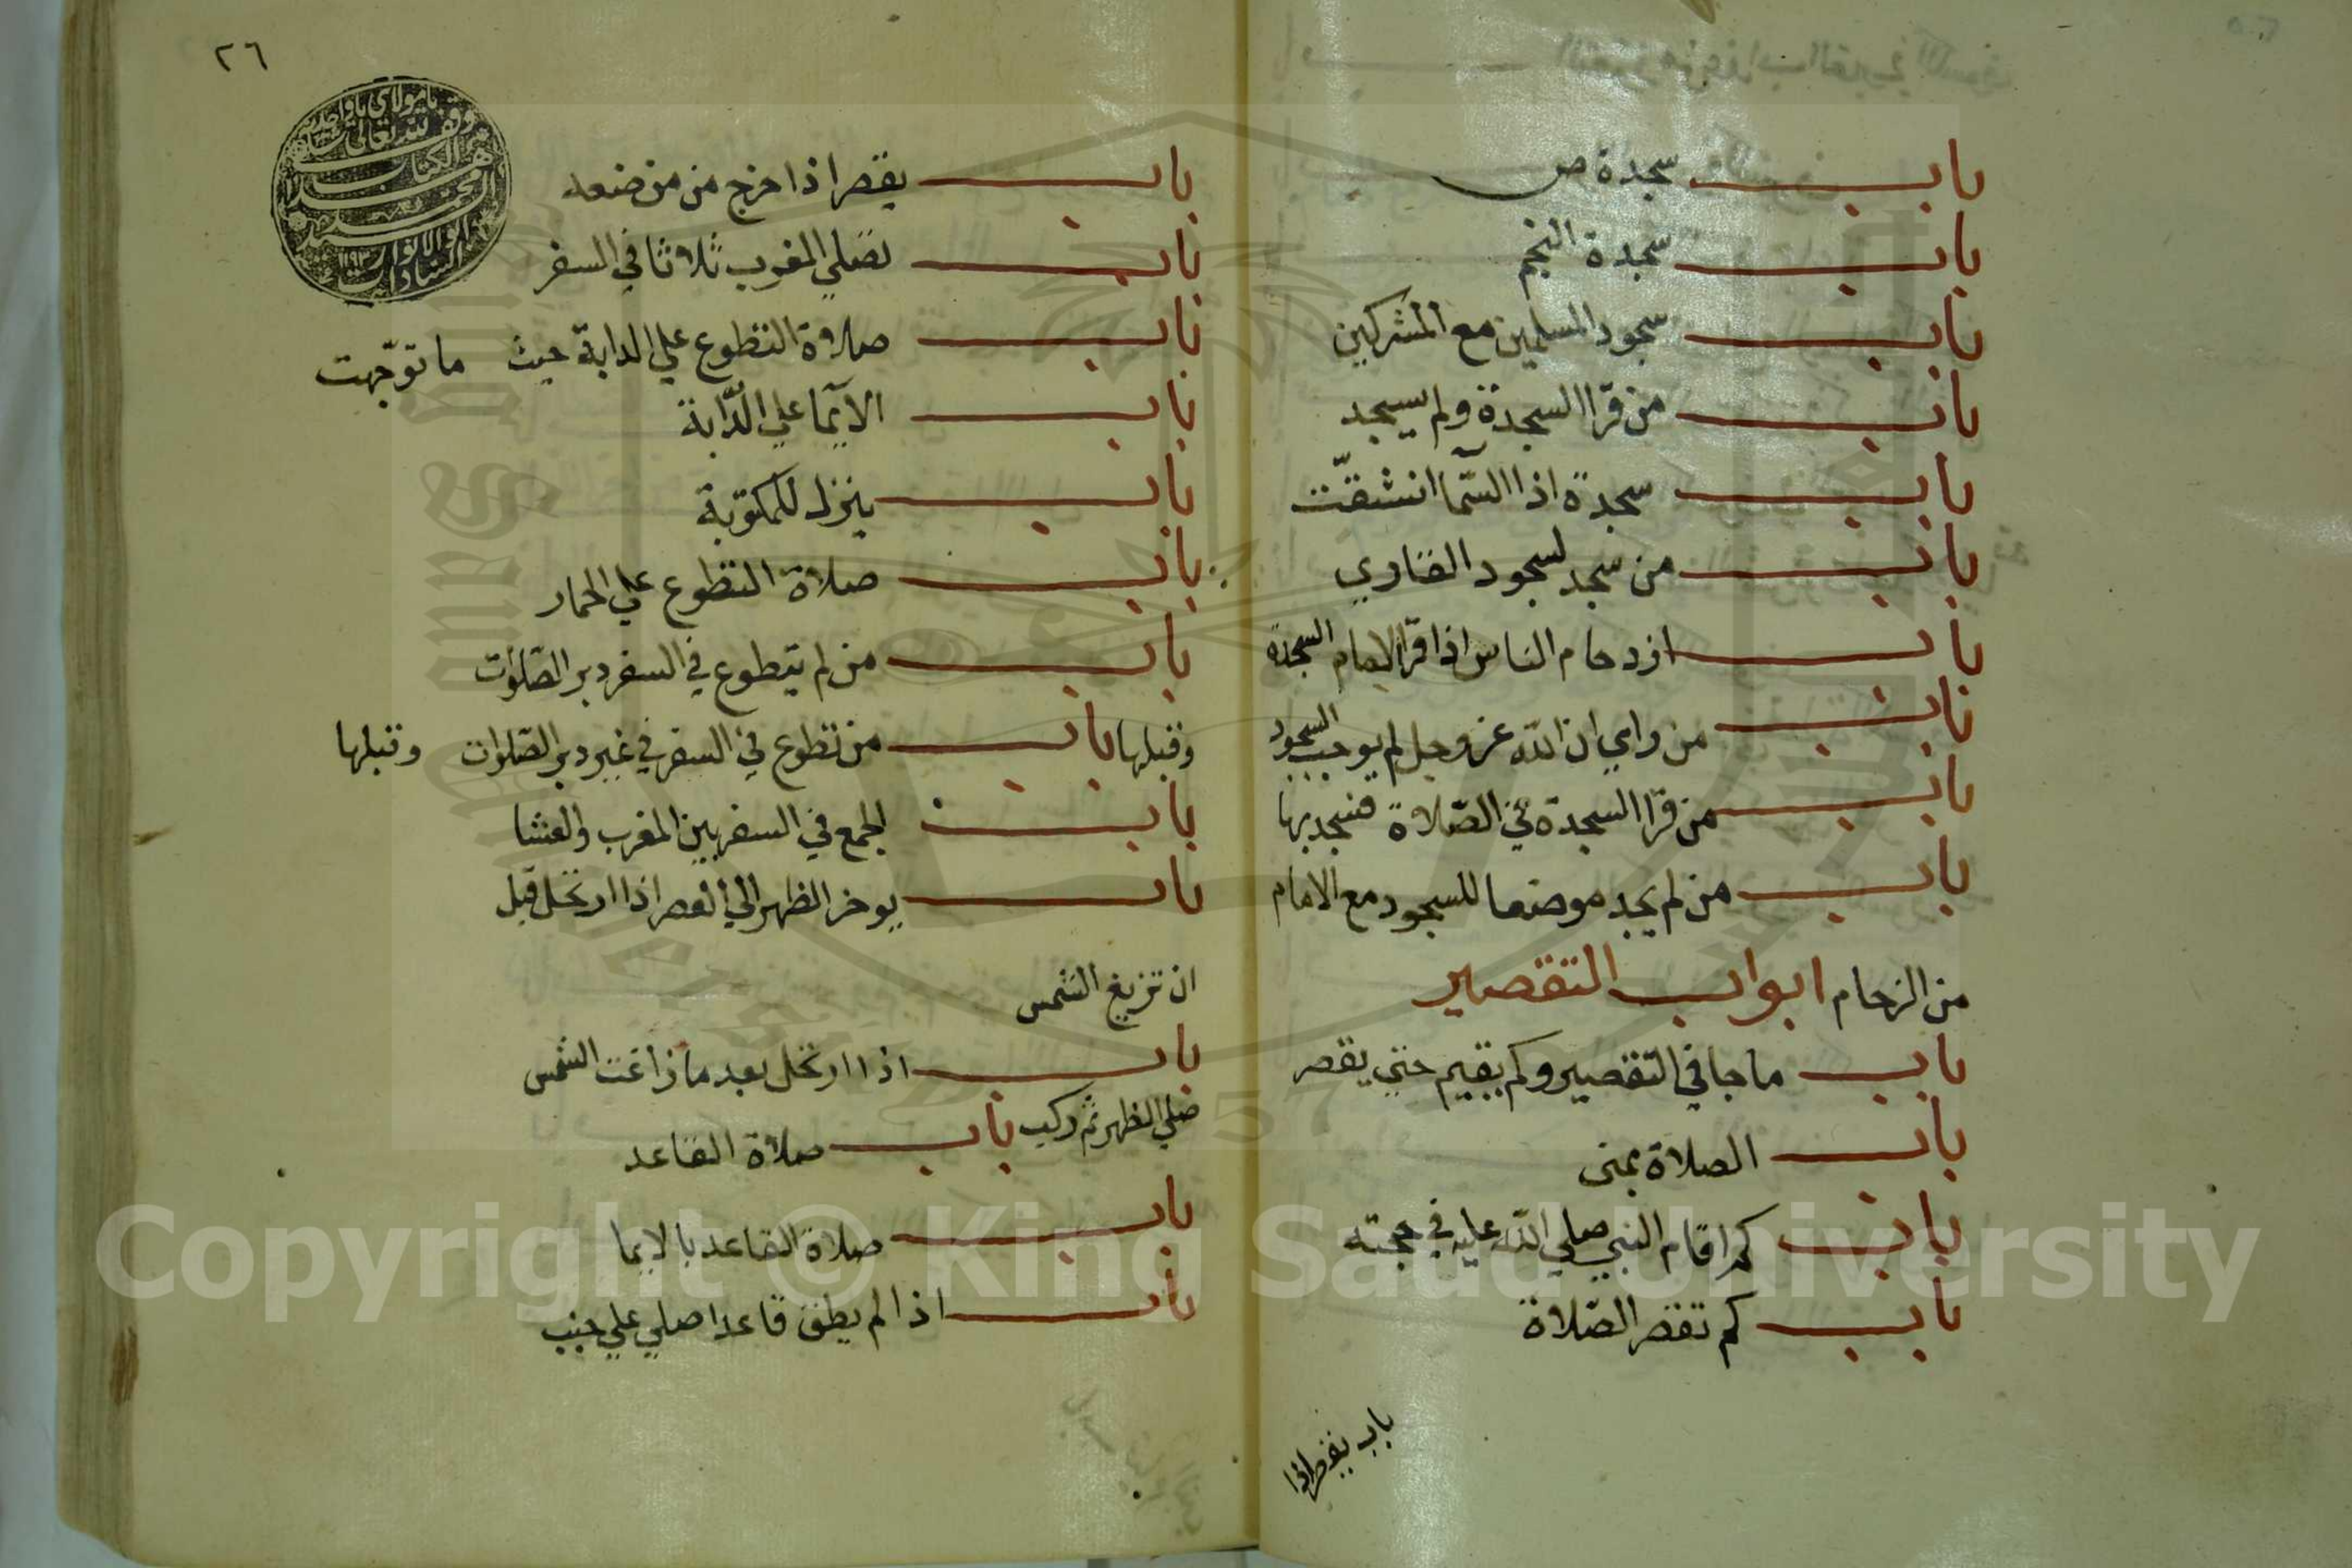 باب سجدة ص
باب سجدة النجم
باب سجود المسلمين مع المشركين
باب من قرا السجدة ولم يسجد
باب سجدة اذا السمآ انشقّت
باب من سجد لسجود القاري
باب ازدحام الناس اذا قرا الامام السجدة
باب من راي ان الله عز وجل لم يوجب السجود
باب من قرا السجدة في الصّلاة فسجد بها
باب من لم يجد موضعا للسجود مع الامام
من الزحام ابواب التقصير
باب ما جا في التقصير وكم يقيم حتي يقصر
باب الصلاة بمنى
باب كم اقام النبي صلي الله عليه في حجته
باب كم تقصر الصّلاة
باب يقصر اذا
٢٦
باب يقصر اذا خرج من من ضعه
باب تصلي المغرب ثلاثا في السفر
باب صلاة التطوع علي الدابة حيث ما توجّهت
باب الايمآ علي الدّابة
باب ينزل للمكتوبة
باب صلاة التطوع علي الحمار
باب من لم يتطوع في السفر دبر الصّلوات
وقبلها باب من تطوع في السفر في غير دبر الصّلوات وقبلها
باب الجمع في السفر بين المغرب والعشا
باب يوخر الظهر الي العصر اذا ارتحل قبل
ان تزيغ الشمس
باب اذا ارتحل بعد ما زاغت الشمس
صلي الظهر ثم ركب باب صلاة القاعد
باب صلاة القاعد بالايما
باب اذا لم يطق قاعدا صلي علي جنب
Copyright © King Saud University